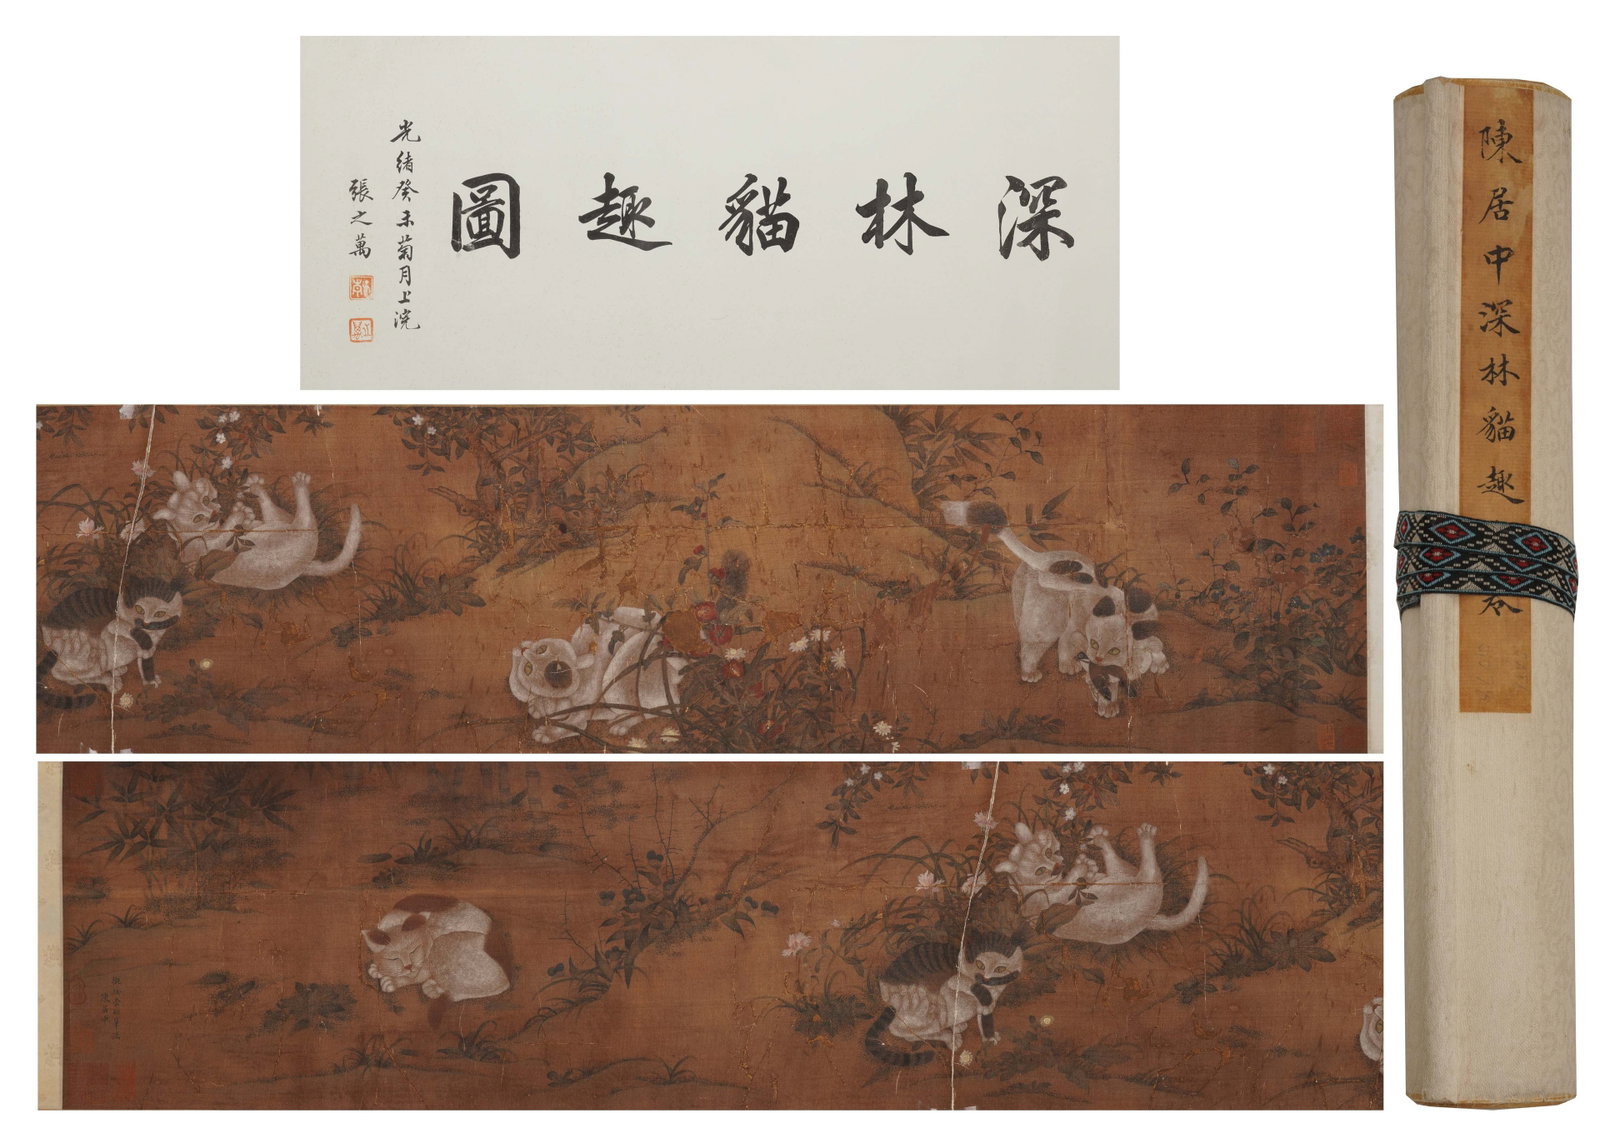 深林貓趣圖
光緒癸未菊月上浣
張之萬
陳居中深林貓趣